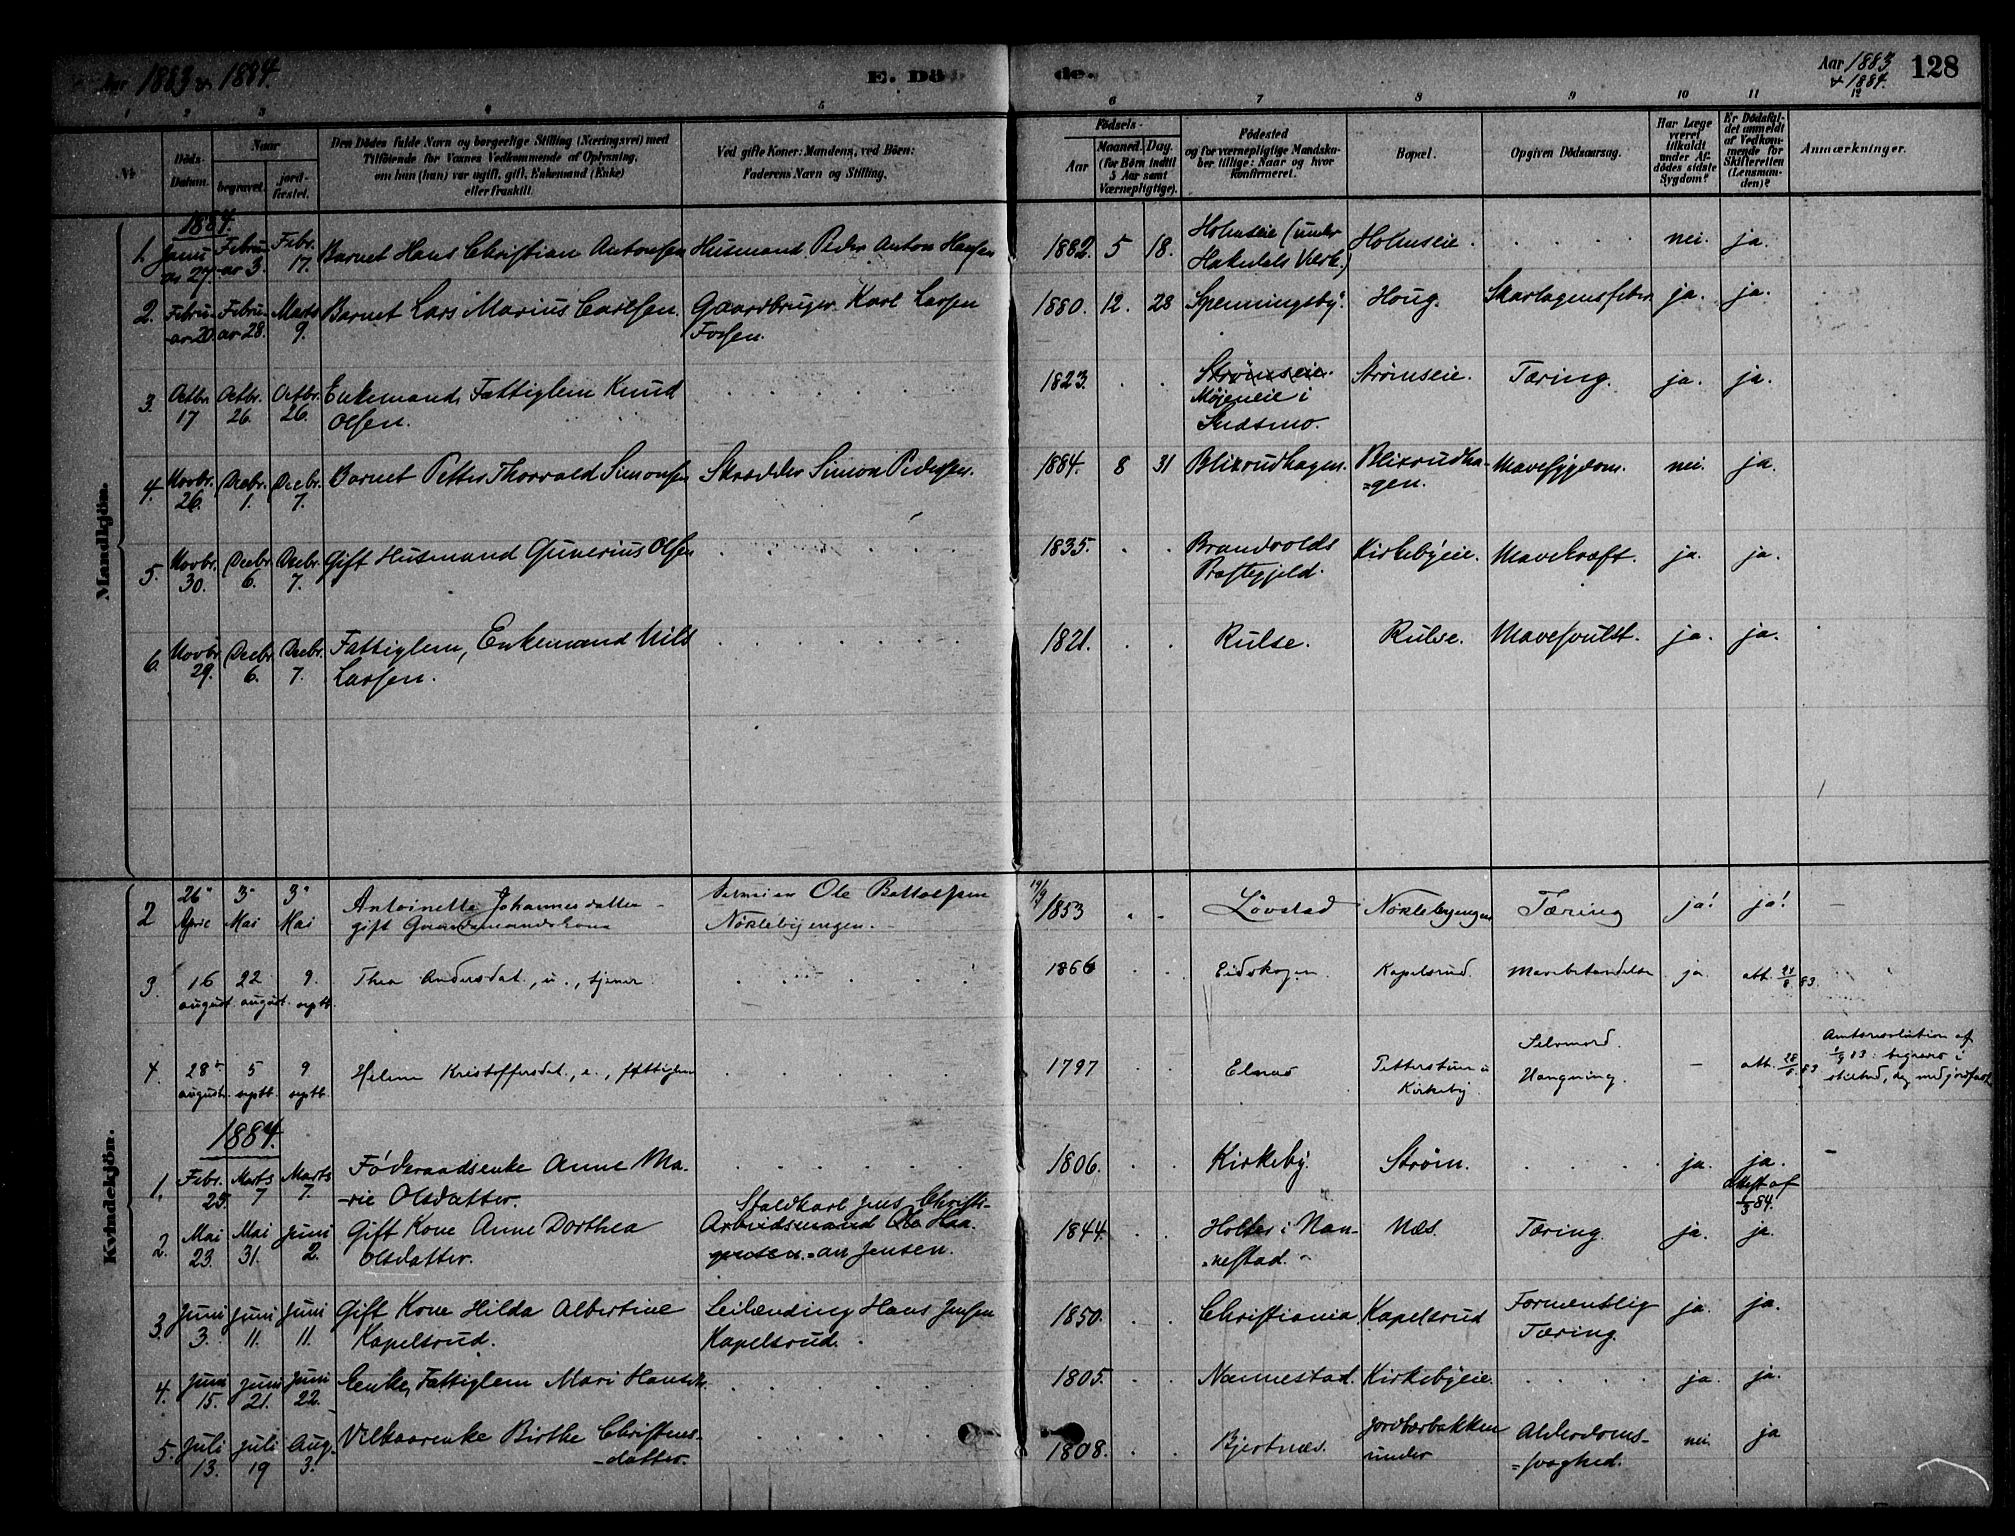 Aar 1883 & 1884.
E. Dö
de.
Aar 1883 & 1884.
128
1 2 3 4 5 6 7 8 9 10 11 12
№
Döds-Datum.
Naar
begravet.
jord-fæstet.
Den Dödes fulde Navn og borgerlige Stilling (Næringsvei) med
Tilföiende for Voxnes Vedkommende af Oplysning,
om han (hun) var ugift, gift, Enkemand (Enke)
eller fraskilt.
Ved gifte Koner: Mandens, ved Börn:
Faderens Navn og Stilling.
Födsels-
Aar
Maaned. Dag.
(for Börn indtil
5 Aar samt
Værnepligtige).
Födested
og for værnepligtige Mandska-
ber tillige: Naar og hvor
konfirmeret.
Bopæl.
Opgiven Dödsaarsag.
Har Læge
været
tilkaldt
under Af-
dödes sidste
Sygdom?
Er Dödsfal-
det anmeldt
af Vedkom-
mende for
Skifteretten
(Lensman-
den)?
Anmærkninger.
Mandkjön.
1884.
1. Janu-ar 27. Febru-ar 3. Febr. 17. Barnet Hans Christian Antonsen Husmand Peder Anton Hansen 1882. 5 18. Holmseie (under Hakedals Værk.) Holmseie. nei. ja.
2. Febru-ar 20. Febru-ar 28. Marts 9. Barnet Lars Marius Carlsen. Gaardbruger Karl Larsen Fossen. 1880. 12. 28 Spenningsby. Houg. Skarlagensfeber ja. ja.
3. Octbr. 17 Octbr. 26. Octbr. 26. Enkemand, Fattiglem Knud Olsen. 1823. Strømseie. Møjeneie i Strømseie. Tæring. ja. ja.
4. Novbr. 26. Decbr. 1. Decbr. 7. Barnet Petter Thorvald Simonsen Skrædder Simon Pedersen. 1884. 8 31 Blixrudhagen. Blixrudha-gen. Mavesygdom. nei. ja.
5. Novbr. 30. Decbr. 6. Decbr. 7. Gift Husmand Gunerius Olsen 1835. Brandvolds Præstegjeld. Kirkebyeie. Mavekræft. ja. ja.
6. Novbr. 29. Decbr. 6. Decbr. 7. Fattiglem, Enkemand Nils Larsen. 1821. Rulse. Rulse. Mavesvulst. ja. ja.
Kvindekjön.
2 26 April 3 Mai 3 Mai Antoinette Johannesdatter gift Gaardmandskone Ole Bottolfsen Nöklebyengen. 1853 Lövstad Nöklebyengen Tæring ja! ja!
3. 16 august. 22 august. 9. septt. Thea Andersdat., u., tjener. 1866 Eidskogen. Kapelsrud. Mavebetændelse ja. att. 24/8 83
4. 28 august. 5 septt. 9 septt. Helene Kristoffersdat., e., fattiglem 1797 Elnæs Petterstuen u Kirkeby. Selvmord. Hængning. – att. 28/8 83 Amtsresolution af 1/9 83: begraves i stilhed, dog med jordfæst.
1884.
1. Febr. 25. Marts 7 Marts 7. Føderaadsenke Anne Ma-rie Olsdatter. 1806. Kirkeby. Strøm. ja. ja. Attest af 1/3 84.
2. Mai 23. Mai 31. Juni 2. Gift Kone Anne Dorthea Olsdatter. Staldkarl Jens Christi- Arbeidsmand Ole Haa-gensen. -an Jensen. 1844. Holter i Nan-nestad. Næs. Tæring. ja. ja.
3. Juni 3. Juni 11. Juni 11. Gift Kone Hilda Albertine Kapelsrud. Leilænding Hans Jensen Kapelsrud. 1850. Christiania Kapelsrud Formentlig Tæring. ja. ja.
4. Juni 15. Juni 21. Juni 22. Enke, Fattiglem Mari Hansdt. 1805. Nannestad. Kirkebyeie. ja. ja.
5. Juli 13. Juli 19 Aug. 3. Vilkaarenke Birthe Christens-datter. 1808. Bjertnæs. Jordbærbakken under Alderdoms-svaghed. nei. ja